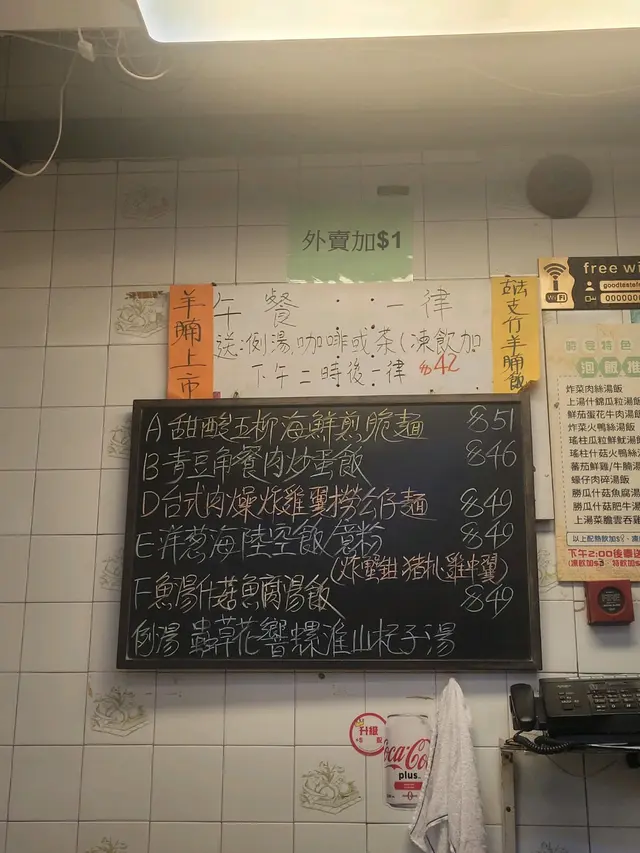 外賣加$1
羊腩上市
午餐：：一律
送:例湯,咖啡或茶(凍飲加
下午二時後一律 $42
古法支竹羊腩飯
free wi
WiFi
A 甜酸五柳海鮮煎脆麵 $51
B 青豆角餐肉炒蛋飯 $46
D 台式肉燥炸雞翼撈公仔麵 $49
E 洋葱海陸空飯/意粉 $49
(炸蟹鉗 猪扒 雞中翼)
F 魚湯什菇魚腐湯飯 $49
例湯 蟲草花響螺淮山杞子湯
炸菜肉絲湯飯
上湯什錦瓜粒湯飯
鮮茄蛋花牛肉湯飯
炸菜火鴨絲湯飯
瑤柱瓜粒鮮魷湯飯
瑤柱什菇火鴨絲
蕃茄鮮雞/牛腩湯
蠔仔肉碎湯飯
勝瓜什菇魚腐湯
勝瓜什菇肥牛湯
上湯菜膽雲吞雞
以上配熱飲加$2
下午2:00後奉送
升級
Coca-Co
plus